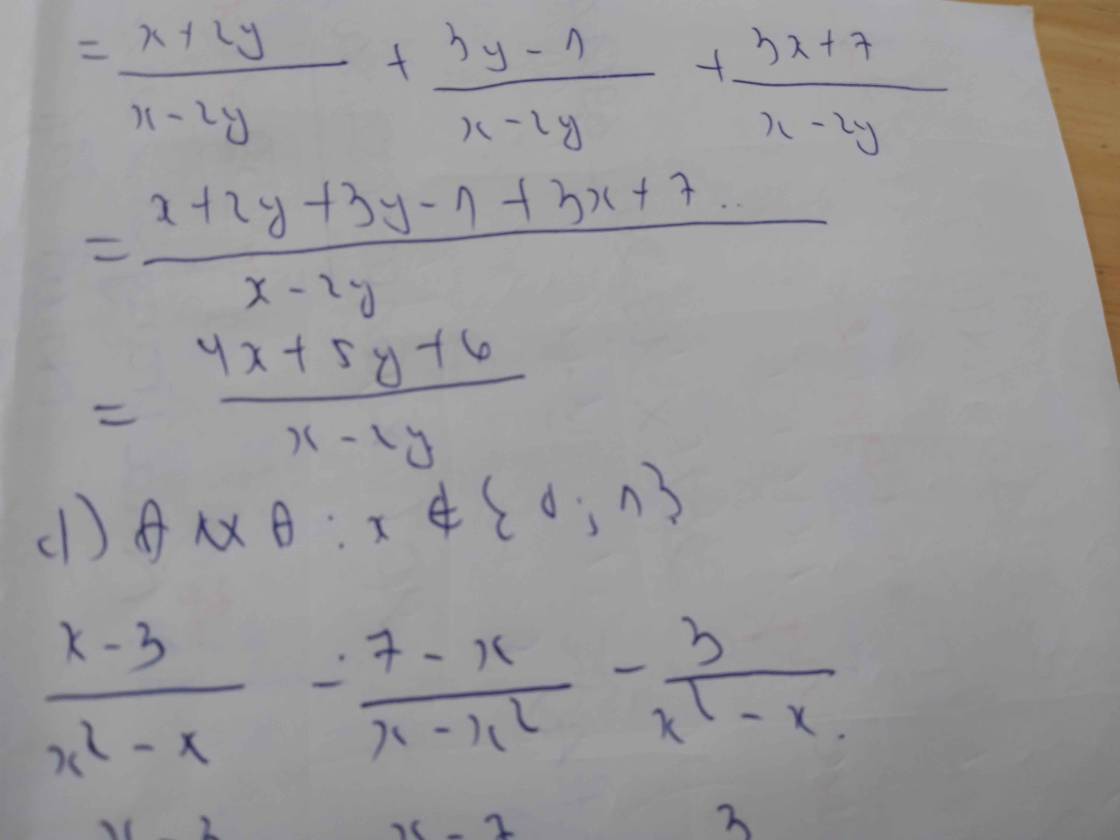 = (x + 2y)/(x - 2y) + (3y - 1)/(x - 2y) + (3x + 7)/(x - 2y)
= (x + 2y + 3y - 1 + 3x + 7)/(x - 2y)
= (4x + 5y + 6)/(x - 2y)
d) ĐKXĐ : x ∉ {0; 1}
(x - 3)/(x² - x) - (7 - x)/(x - x²) - 3/(x² - x).
x - 3 x - 7 3